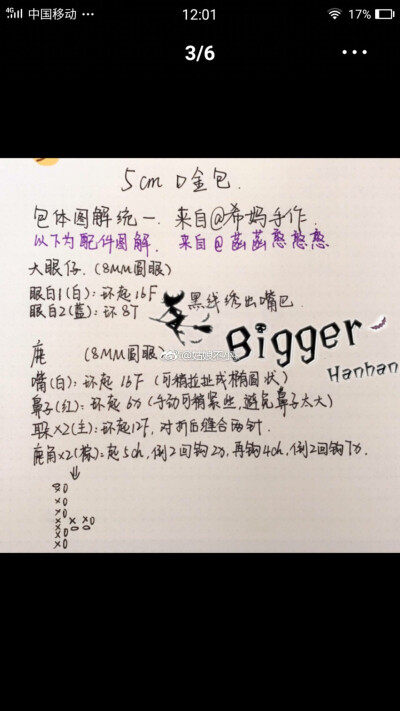 4G 中国移动 ••• 12:01 17%
3/6 •••
5cm 口金包.
包体图解统一. 来自@希妈手作.
以下为配件图解. 来自@菡菡憨憨憨
大眼仔. (8MM圆眼)
眼白1(白): 环起16F
眼白2(蓝): 环8T
黑线绣出嘴巴.
Bigger
Hanhan
鹿 (8MM圆眼)
嘴(白): 环起16F (可稍拉扯成椭圆状)
鼻子(红): 环起6x (手动可稍紧些,避免鼻子太大)
耳朵x2(土): 环起12F, 对折后缝合两针.
鹿角x2(棕): 起5ch, 倒2回钩2x, 再钩4ch, 倒2回钩7x.